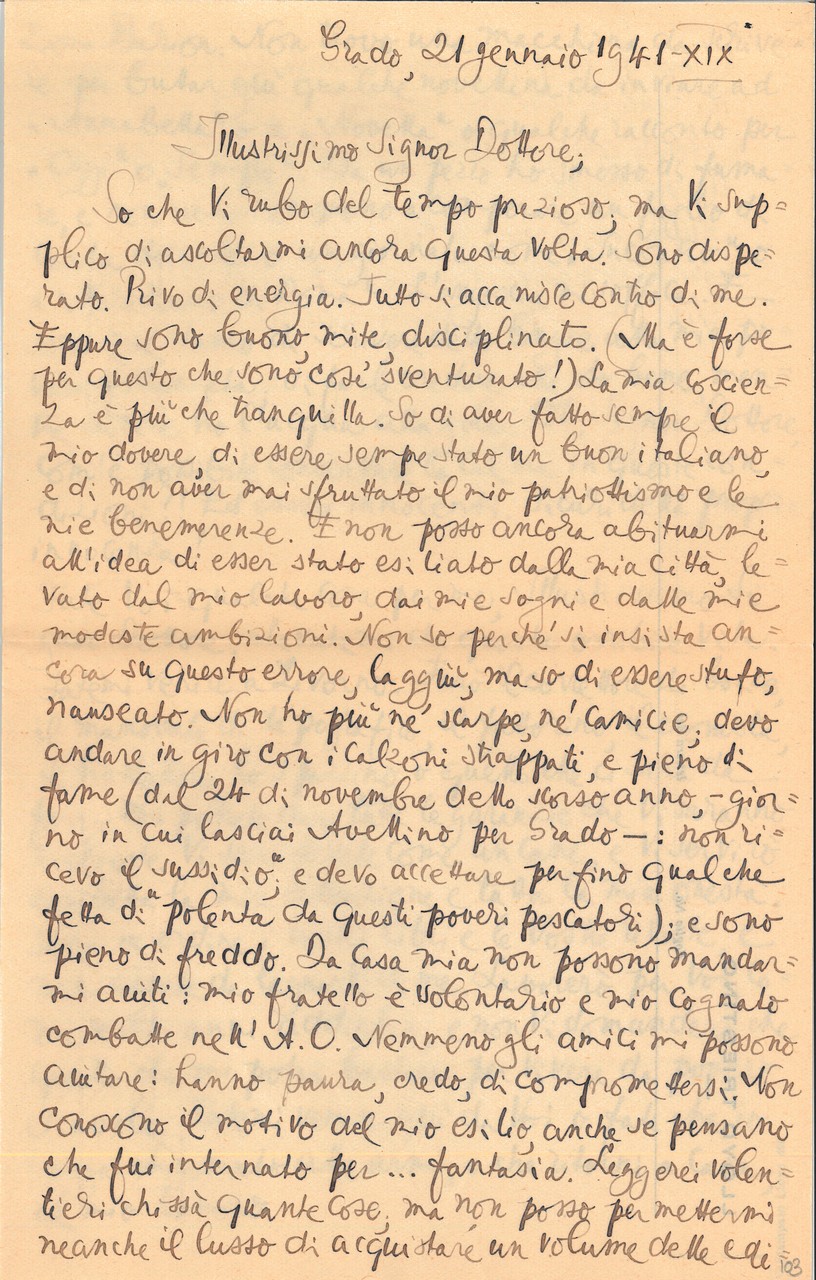 Grado, 21 gennaio 1941-XIX
Illustrissimo Signor Dottore;
So che Vi rubo del tempo prezioso, ma Vi sup=
plico di ascoltarmi ancora questa volta. Sono dispe=
rato. Privo di energia. Tutto si accanisce contro di me.
Eppure sono buono, mite, disciplinato. (Ma è forse
per questo che sono così sventurato!) La mia coscien=
za è più che tranquilla. So di aver fatto sempre il
mio dovere, di essere sempe stato un buon italiano,
e di non aver mai sfruttato il mio patriottismo e le
mie benemerenze. E non posso ancora abituarmi
all'idea di esser stato esiliato dalla mia città, le=
vato dal mio lavoro, dai mie sogni e dalle mie
modeste ambizioni. Non so perché si insista an=
cora su questo errore, laggiù, ma so di essere stufo,
nauseato. Non ho più né scarpe, né camicie, devo
andare in giro con i calzoni strappati, e pieno di
fame (dal 24 di novembre dello scorso anno, - gior=
no in cui lasciai Avellino per Grado —: non ri=
cevo il "sussidio"; e devo accettare per fino qualche
fetta di polenta da questi poveri pescatori); e sono
pieno di freddo. Da casa mia non possono mandar=
mi aiuti: mio fratello è volontario e mio cognato
combatte nell'A.O. Nemmeno gli amici mi possono
aiutare: hanno paura, credo, di compromettersi. Non
conoscono il motivo del mio esilio, anche se pensano
che fui internato per... fantasia. Leggerei volen=
tieri chissà quante cose, ma non posso permettermi
neanche il lusso di acquistare un volume delle edi=
103